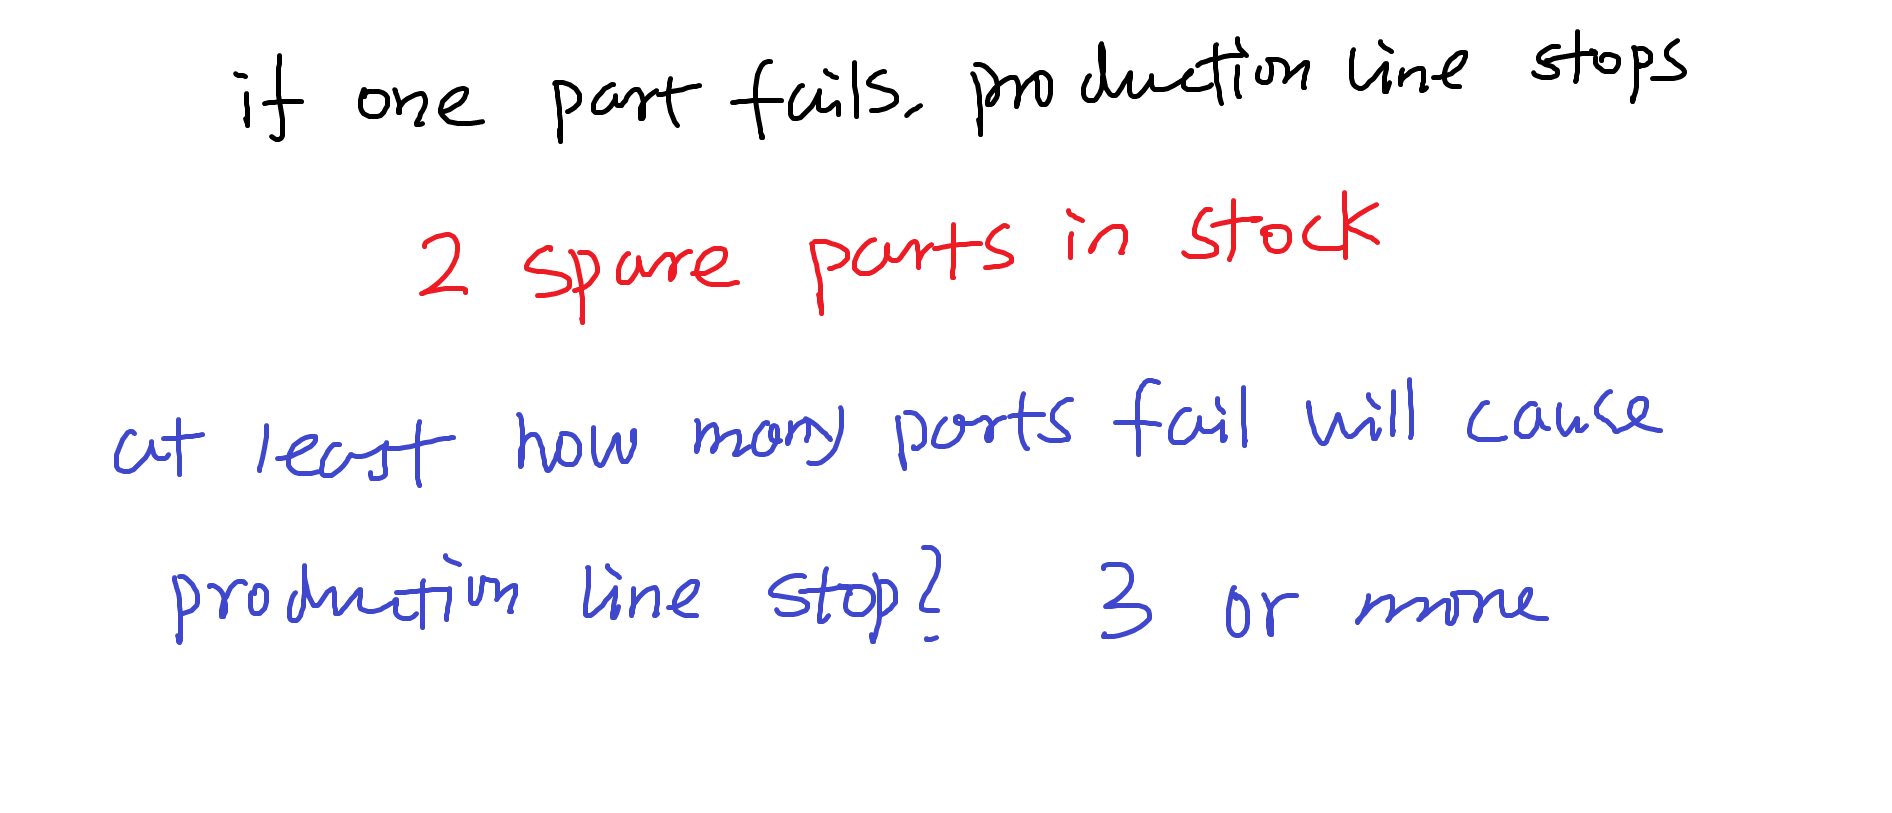 if one part fails, production line stops
2 spare parts in stock
at least how many parts fail will cause
production line stop? 3 or more